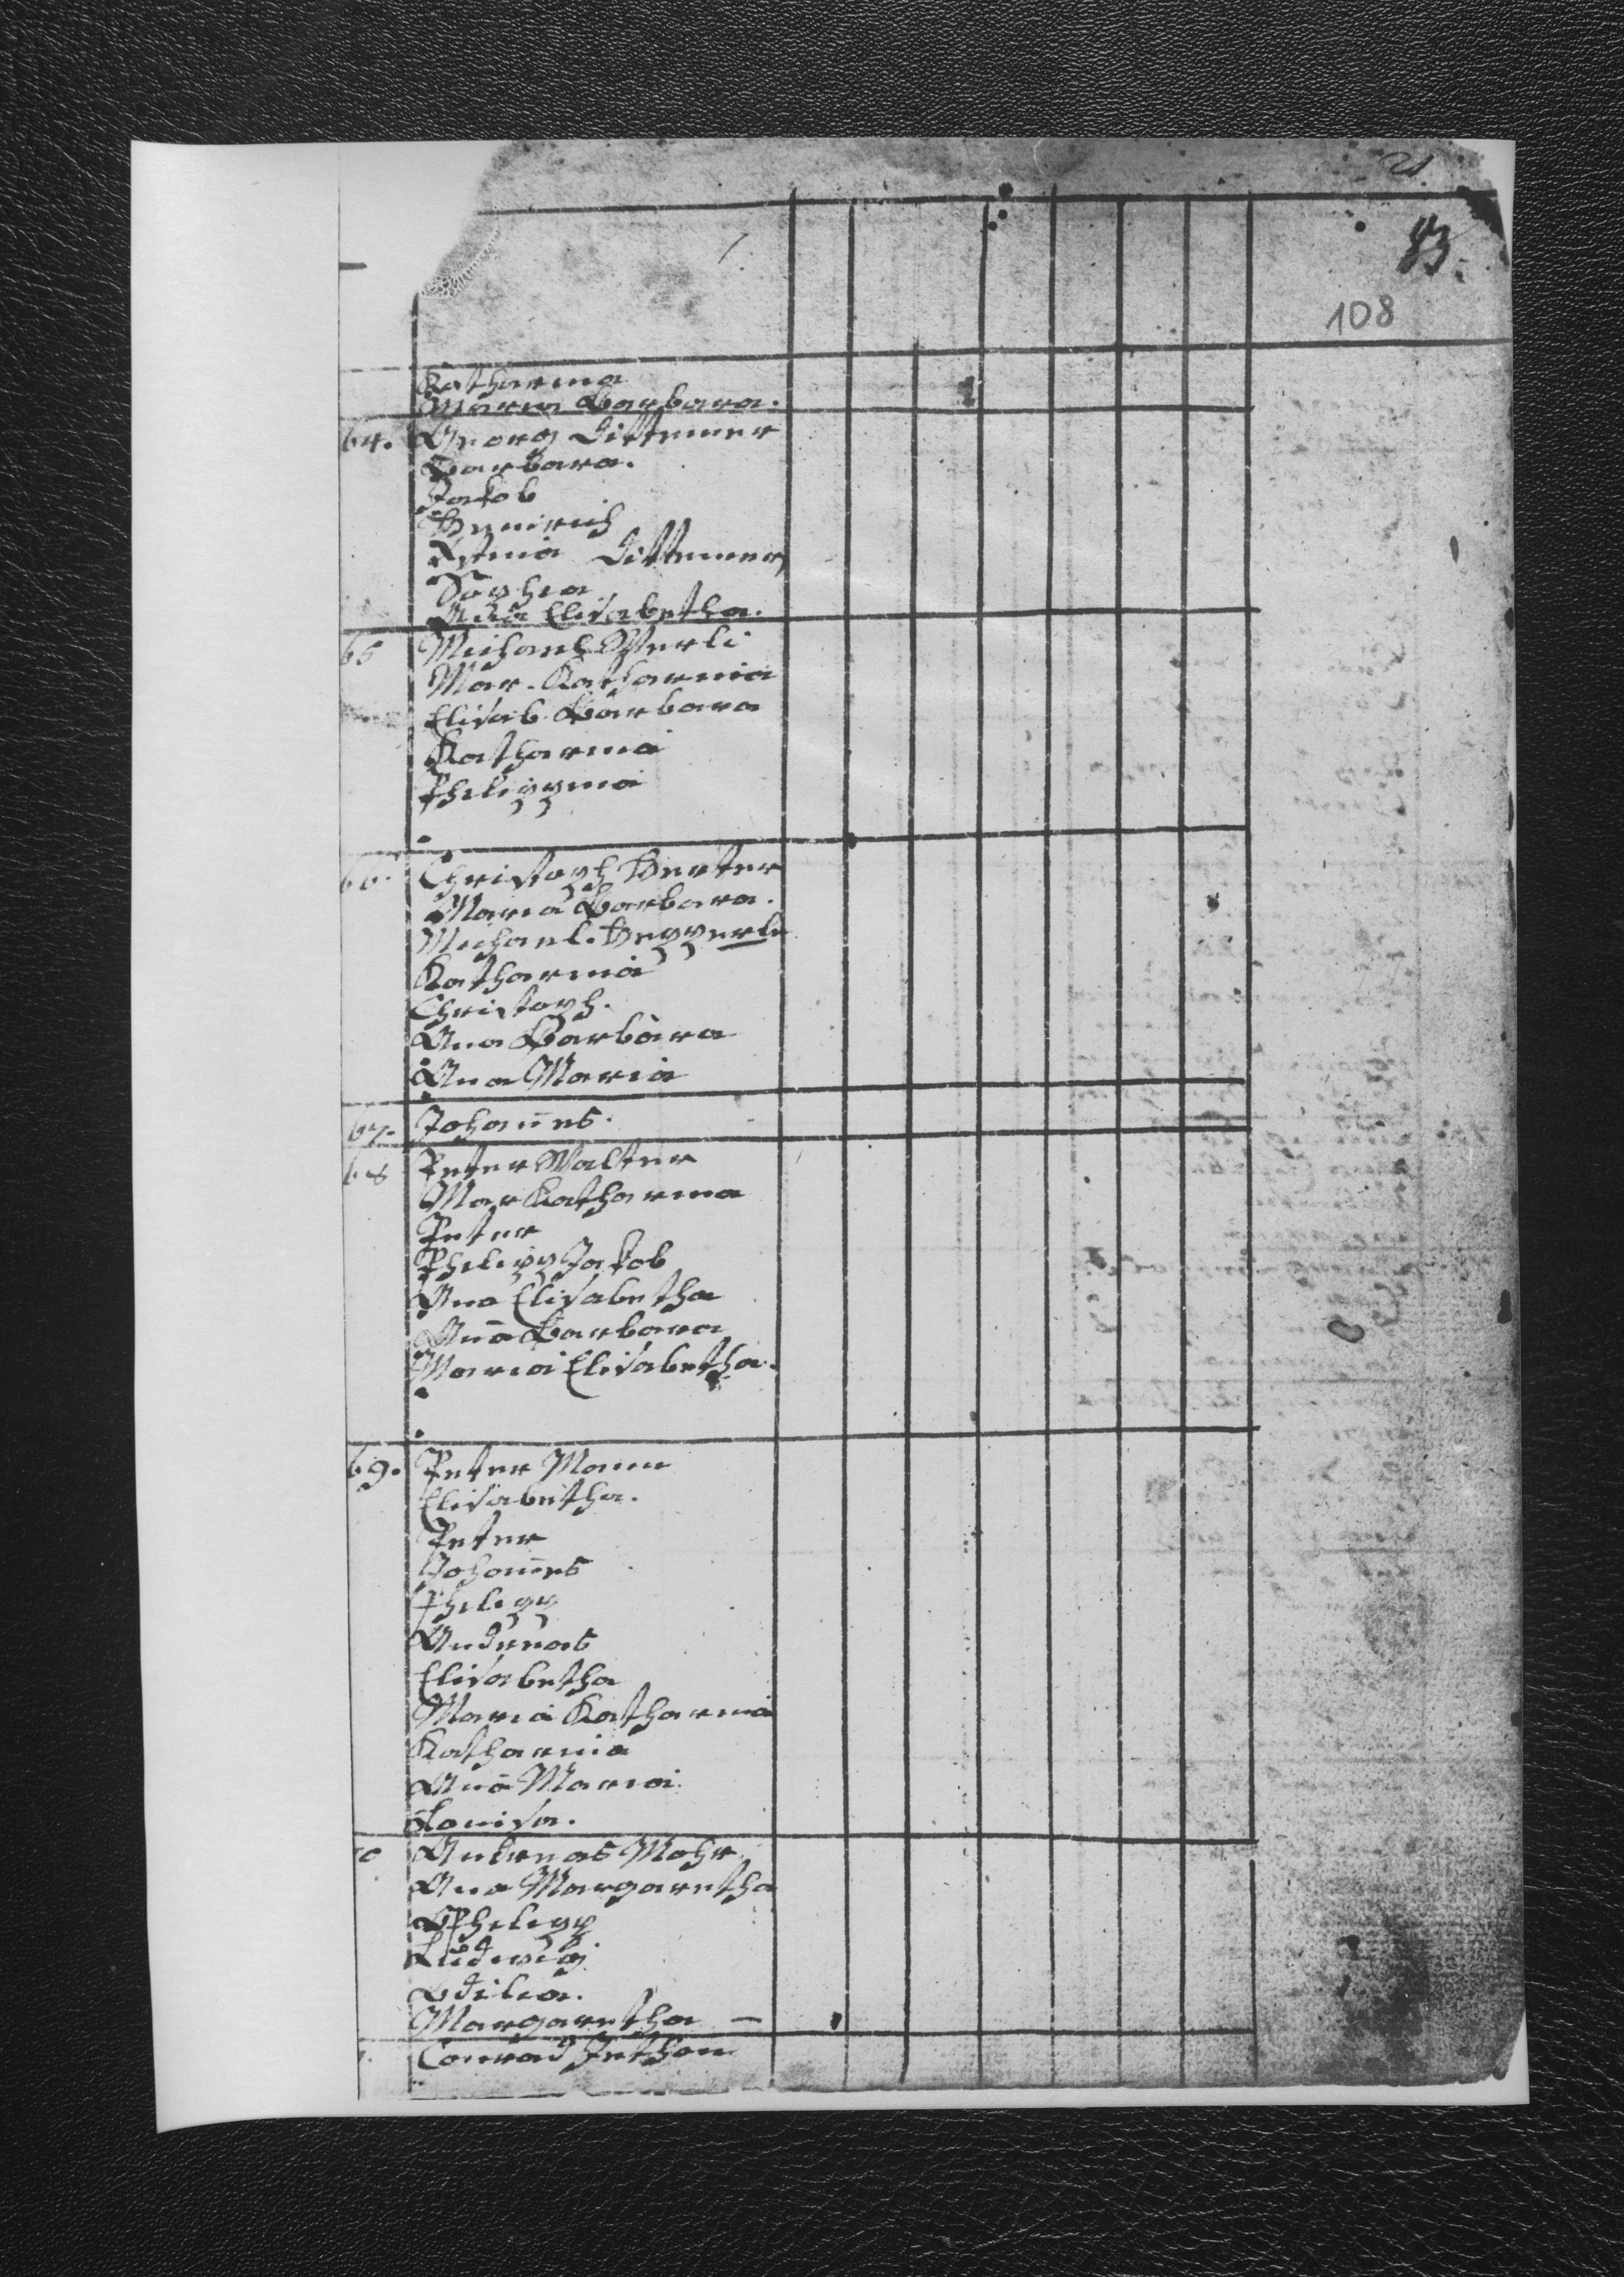 21
83.
108
Katharina
Maria Barbara.
64. Georg Dittemer
Barbara.
Jakob
Heinrich
Dittemer
Sophia
Aña Elisabetha.
65 Michael
Mar. Katharina
Elisab. Barbara
Katharina
Philippina
66. Christoph
Maria Barbara.
Michael. Hepperle
Katharina
Christoph.
Ana Barbara
Ana Maria
67. Johañes.
68 Peter Walter
Mar Katharina
Peter
Philipp Jakob
Ana Elisabetha
Anā Barbara
Maria Elisabetha.
69. Peter Mann
Elisabetha.
Peter
Johañes
Philipp
Andreas
Elisabetha
Maria Katharina
Katharina
Anā Maria.
Louisa.
70 Andreas Mohr.
Ana Margaretha
Philipp
Ludwig
Odilia.
Margaretha –
Conrad